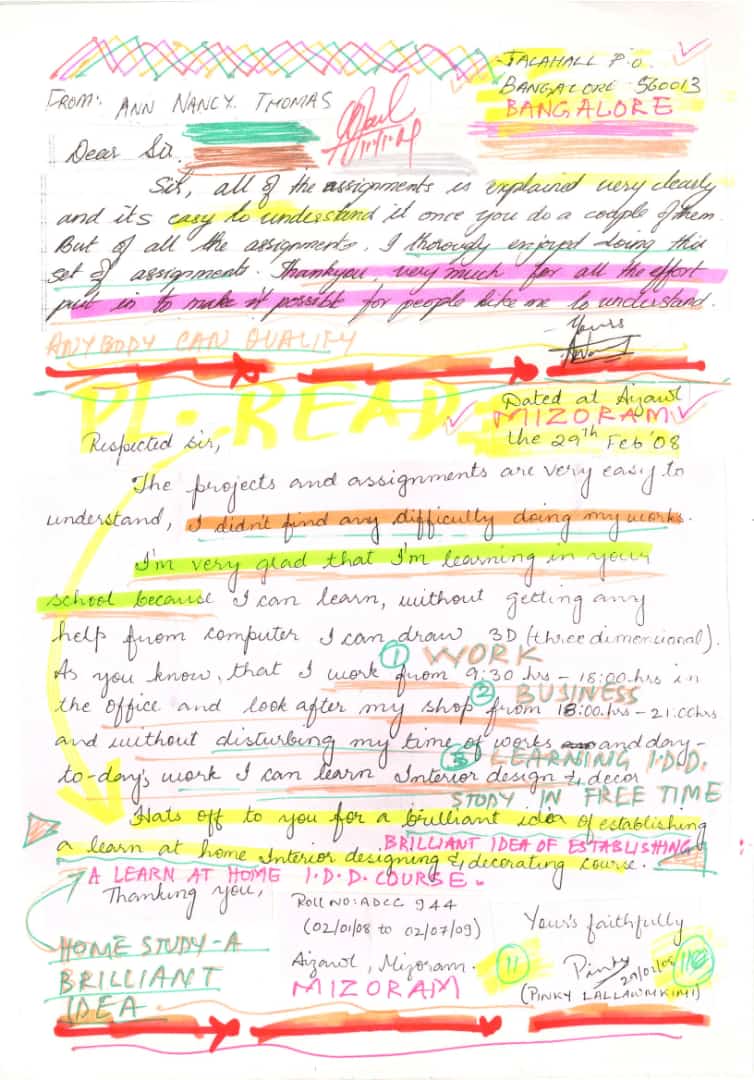 JALAHALL P.O.
BANGALORE 560013
BANGALORE
FROM: ANN NANCY. THOMAS
Dear Sir.
Sir, all of the assignments is explained very clearly
and its easy to understand it once you do a couple of them.
But of all the assignments, I thorougly enjoyed doing this
set of assignments. Thankyou, very much for all the effort
put in to make it possible for people like me to understand.
Yours
ANYBODY CAN QUALITY
PL. READ
Dated at Aizawl
MIZORAM
the 29th Feb '08
Respected Sir,
The projects and assignments are very easy to
understand, I didn't find any difficulty doing my works.
I'm very glad that I'm learning in your
school because I can learn, without getting any
help from computer I can draw 3D (three dimencional).
1 WORK
As you know, that I work from 9:30 hrs - 18:00 hrs in
2 BUSINESS
the office and look after my shop from 18:00 hrs - 21:00hrs
and without disturbing my time of works and day-
3 LEARNING I.D.D.
to-day's work I can learn Interior design & decor
STUDY IN FREE TIME
Hats off to you for a brilliant idea of establishing
a learn at home Interior designing & decorating course.
BRILLIANT IDEA OF ESTABLISHING
A LEARN AT HOME I.D.D. COURSE.
Thanking you,
ROLL NO: ADCC 944
(02/01/08 to 02/07/09)
Aizawl, Mizoram.
MIZORAM
Your's faithfully
Pinky
29/02/08
(PINKY LALLAWMKIMI)
11
HOME STUDY - A
BRILLIANT
IDEA